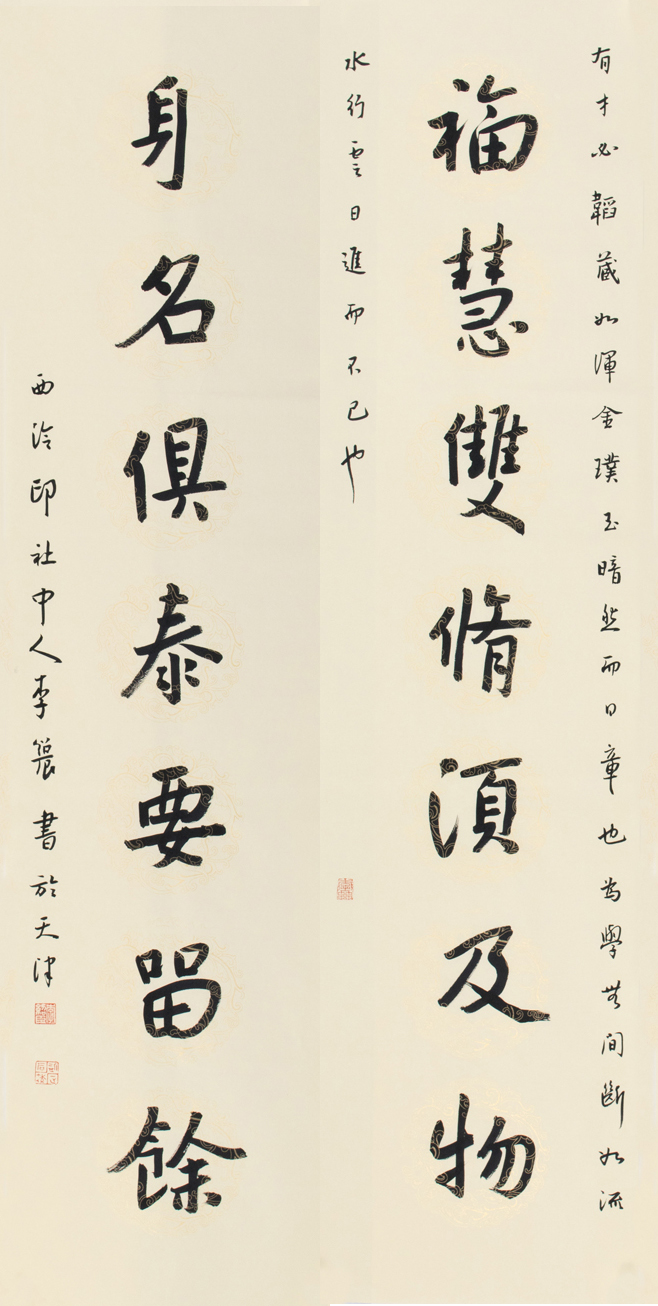 有才必韜藏如渾金璞玉暗然而日章也為學無間斷如流
福慧雙脩須及物
水行雲日進而不已也
身名俱泰要留餘
西泠印社中人李襄書於天津